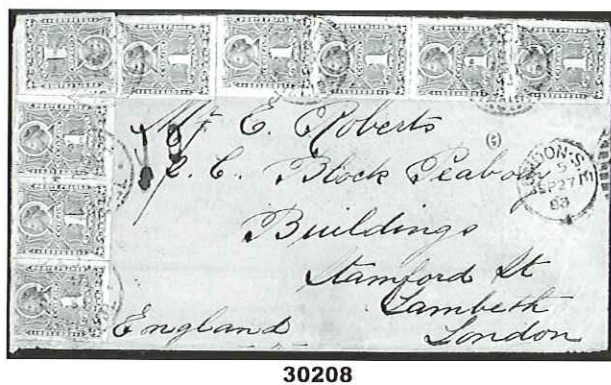 Mr E. Roberts
C. Block Peabody
Buildings
Stamford St
Lambeth
London
England
LONDON·S.E
5
SP27
83
1
1
1
1
1
1
1
1
30208